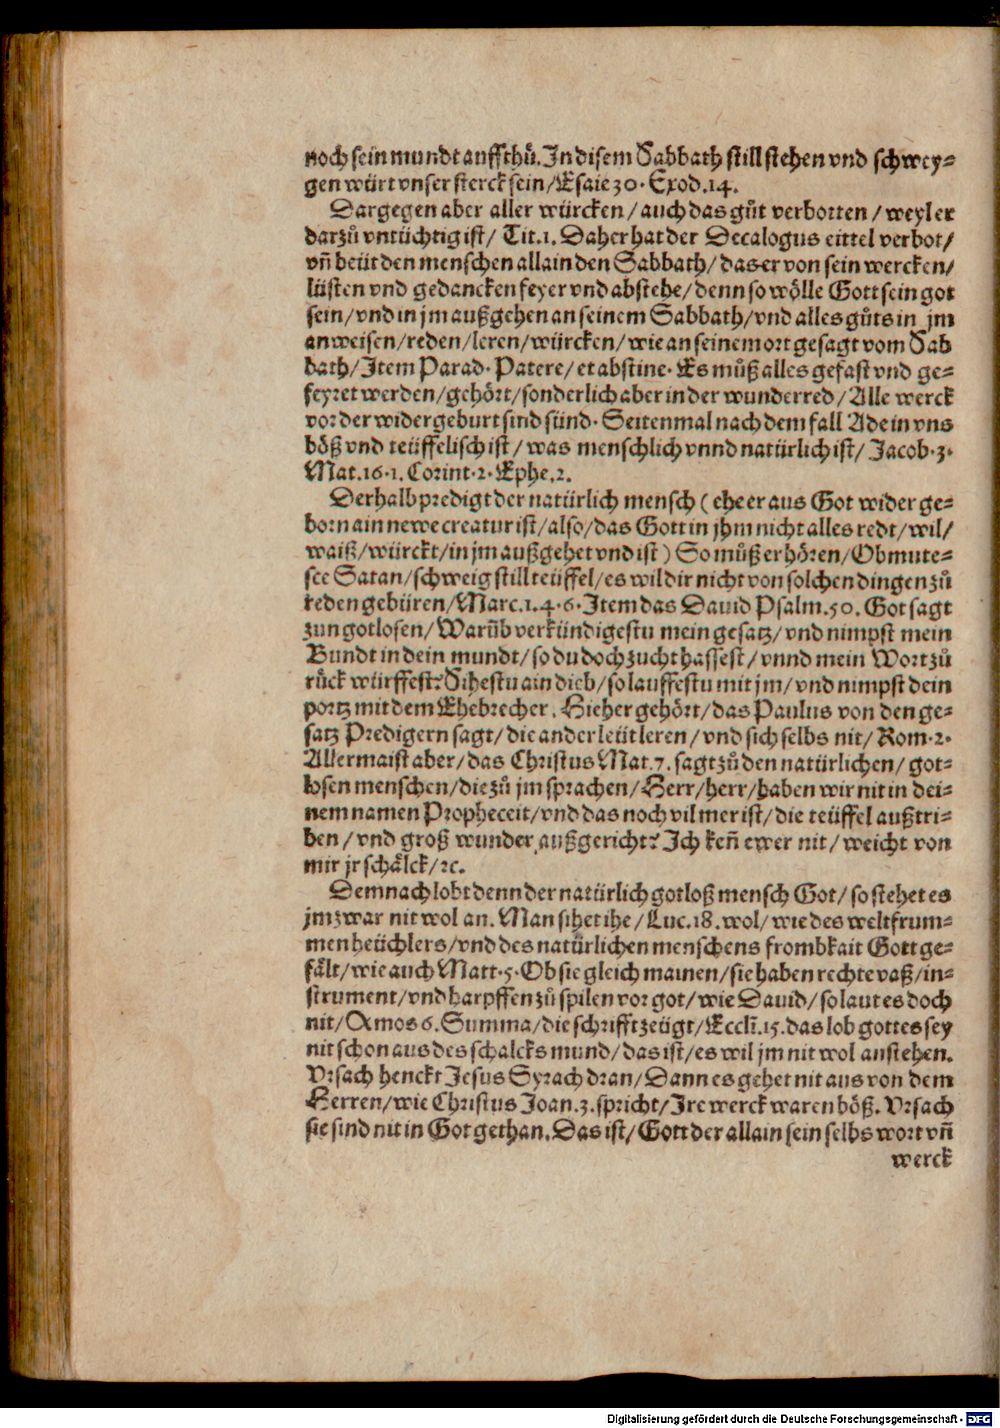 noch sein mundt auffthů. In disem Sabbath still stehen vnd schwey⸗
gen würt vnser sterck sein / Esaie 30. Exod. 14.
Dargegen aber aller würcken / auch das gůt verbotten / weyl er
darzů vntüchtig ist / Tit. 1. Daher hat der Decalogus eittel verbot /
vñ beüt den menschen allain den Sabbath / das er von sein wercken /
lüsten vnd gedancken feyer vnd abstehe / denn so wölle Gott sein got
sein / vnd in jm außgehen an seinem Sabbath / vnd alles gůts in jm
anweisen / reden / leren / würcken / wie an seinem ort gesagt vom Sab
bath / Item Parad. Patere / et abstine. Es můß alles gefast vnd ge⸗
feyret werden / gehört / sonderlich aber in der wunderred / Alle werck
vor der widergeburt sind sünd. Seitenmal nach dem fall Ade in vns
böß vnd teüffelisch ist / was menschlich vnnd natürlich ist / Jacob. 3.
Mat. 16. 1. Corint. 2. Ephe. 2.
Derhalb predigt der natürlich mensch ( ehe er aus Got wider ge⸗
born ain newe creatur ist / also / das Gott in jhm nicht alles redt / wil /
waiß / würckt / in jm außgehet vnd ist ) So můß er hören / Obmute⸗
sce Satan / schweig still teüffel / es wil dir nicht von solchen dingen zů
reden gebüren / Marc. 1. 4. 6. Item das Dauid Psalm. 50. Got sagt
zun gotlosen / Warũb verkündigestu mein gesatz / vnd nimpst mein
Bundt in dein mundt / so du doch zucht hassest / vnnd mein Wort zů
růck würffest? Sihestu ain dieb / so lauffestu mit jm / vnd nimpst dein
portz mit dem Ehebrecher. Hieher gehört / das Paulus von den ge⸗
satz Predigern sagt / die ander leüt leren / vnd sich selbs nit / Rom. 2.
Allermaist aber / das Christus Mat. 7. sagt zů den natürlichen / got⸗
losen menschen / die zů jm sprachen / Herr / herr / haben wir nit in dei⸗
nem namen Propheceit / vnd das noch vil mer ist / die teüffel außtri⸗
ben / vnd groß wunder außgericht? Ich keñ ewer nit / weicht von
mir jr schälck / ꝛc.
Demnach lobt denn der natürlich gotloß mensch Got / so stehet es
jm zwar nit wol an. Man sihet ihe / Luc. 18. wol / wie des weltfrum⸗
men heüchlers / vnd des natürlichen menschens frombkait Gott ge⸗
fält / wie auch Matt. 5. Ob sie gleich mainen / sie haben rechte vaß / in⸗
strument / vnd harpffen zů spilen vor got / wie Dauid / so laut es doch
nit / Amos 6. Summa / die schrifft zeügt / Eccli. 15. das lob gottes sey
nit schon aus des schalcks mund / das ist / es wil jm nit wol anstehen.
Vrsach henckt Jesus Syrach dran / Dann es gehet nit aus von dem
Herren / wie Christus Joan. 3. spricht / Ire werck waren böß. Vrsach
sie sind nit in Got gethan. Das ist / Gott der allain sein selbs wort vñ
werck
Digitalisierung gefördert durch die Deutsche Forschungsgemeinschaft - DFG